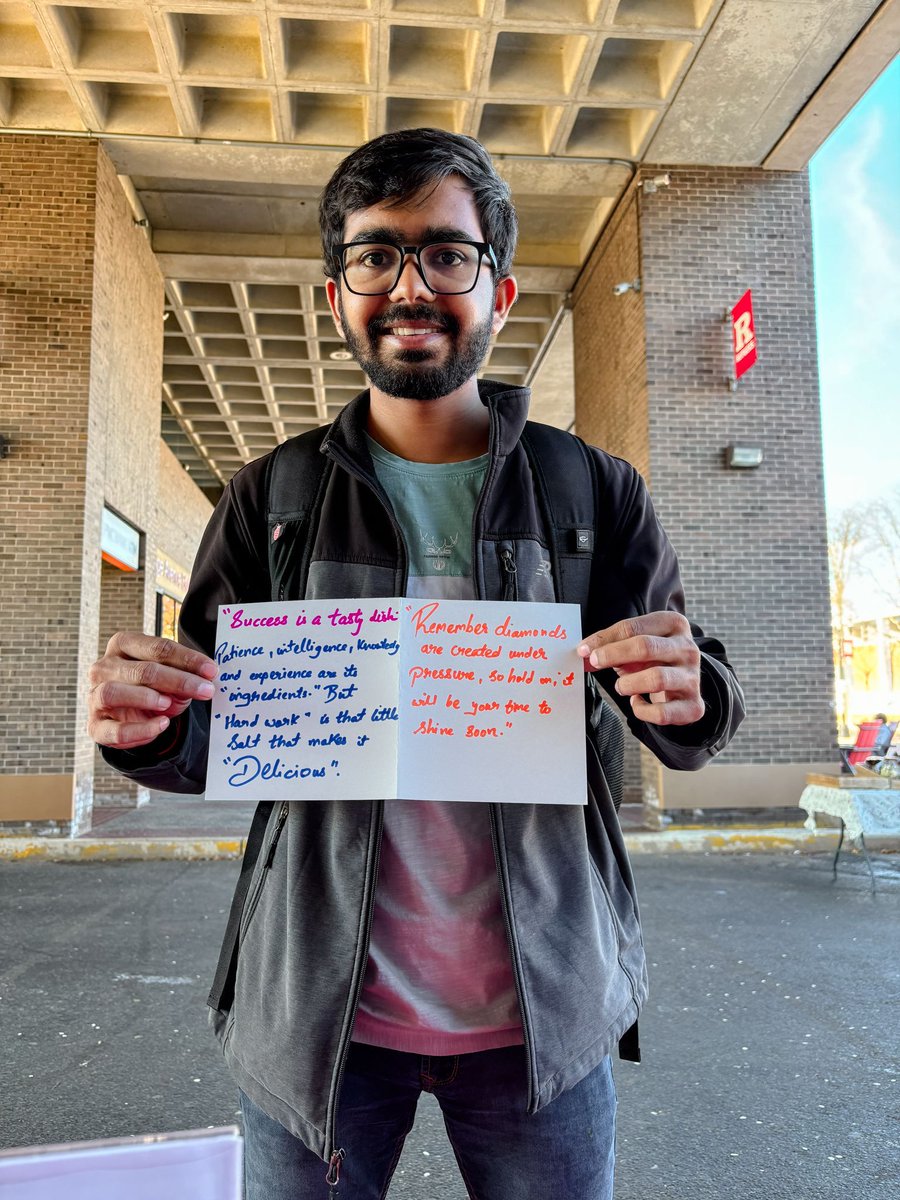 "Success is a tasty dish.
Patience, intelligence, Knowledge
and experience are its
"ingredients." But
"Hard work" is that little
Salt that makes it
"Delicious".
"Remember diamonds
are created under
pressure, so hold on, it
will be your time to
shine soon."
R